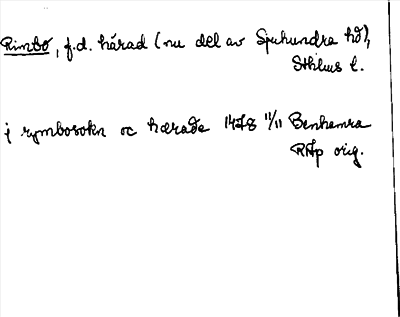 Rimbo, f.d. härad (nu del av Sjuhundra hd),
Sthlms l.
j rymbosokn oc hærade 1478 11/11 Benhamra
RAp orig.